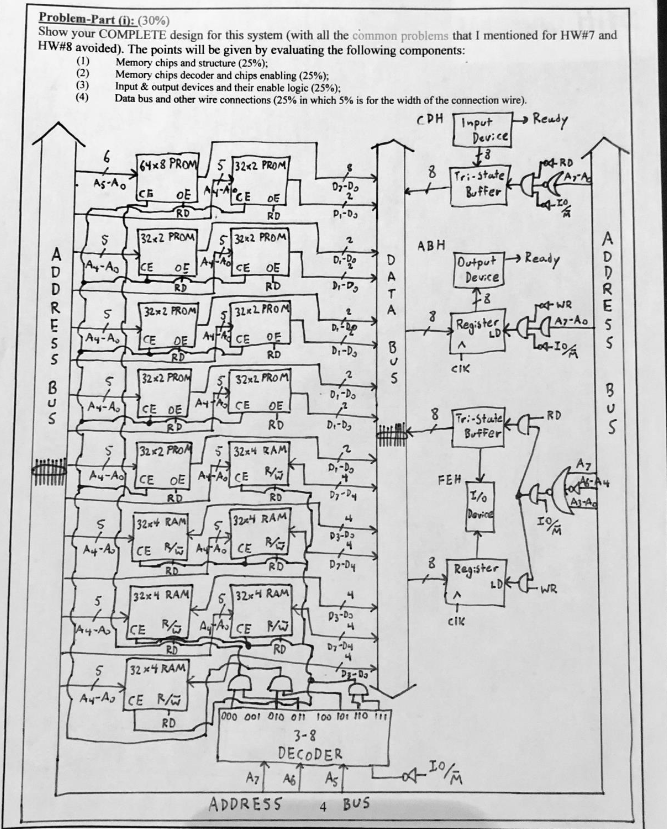 Problem-Part (i): (30%)
Show your COMPLETE design for this system (with all the common problems that I mentioned for HW#7 and
HW#8 avoided). The points will be given by evaluating the following components:
(1) Memory chips and structure (25%);
(2) Memory chips decoder and chips enabling (25%);
(3) Input & output devices and their enable logic (25%);
(4) Data bus and other wire connections (25% in which 5% is for the width of the connection wire).
CDH Input Device → Ready
8
8 Tri-state Buffer RD A7-A0 IO/M̅
ABH
Output Device → Ready
8
8 Register LD WR A7-A0 IO/M̅
clk
8 Tri-State Buffer RD
FEH I/o Device A7 A6-A4 A3-A0 IO/M̅
8 Register LD WR
clk
ADDRESS BUS
DATA BUS
ADDRESS BUS
6 A5-A0 64x8 PROM CE OE RD 5 A4-A0 32x2 PROM CE OE RD 8 D7-D0 2 D1-D0
5 A4-A0 32x2 PROM CE OE RD 5 A4-A0 32x2 PROM CE OE RD 2 D1-D0 2 D1-D0
5 A4-A0 32x2 PROM CE OE RD 5 A4-A0 32x2 PROM CE OE RD 2 D1-D0 2 D1-D0
5 A4-A0 32x2 PROM CE OE RD 5 A4-A0 32x2 PROM CE OE RD 2 D1-D0 2 D1-D0
5 A4-A0 32x2 PROM CE OE RD 5 A4-A0 32x4 RAM CE R/W̅ RD 2 D1-D0 4 D7-D4
5 A4-A0 32x4 RAM CE R/W̅ RD 5 A4-A0 32x4 RAM CE R/W̅ RD 4 D3-D0 4 D7-D4
5 A4-A0 32x4 RAM CE R/W̅ RD 5 A4-A0 32x4 RAM CE R/W̅ RD 4 D3-D0 4 D7-D4
5 A4-A0 32x4 RAM CE R/W̅ RD 4 D3-D0
000 001 010 011 100 101 110 111
3-8
DECODER
A7 A6 A5 IO/M̅
ADDRESS 4 BUS